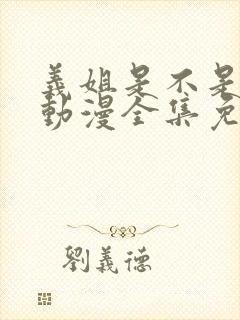 義姐是不是
動漫全集免
劉義德